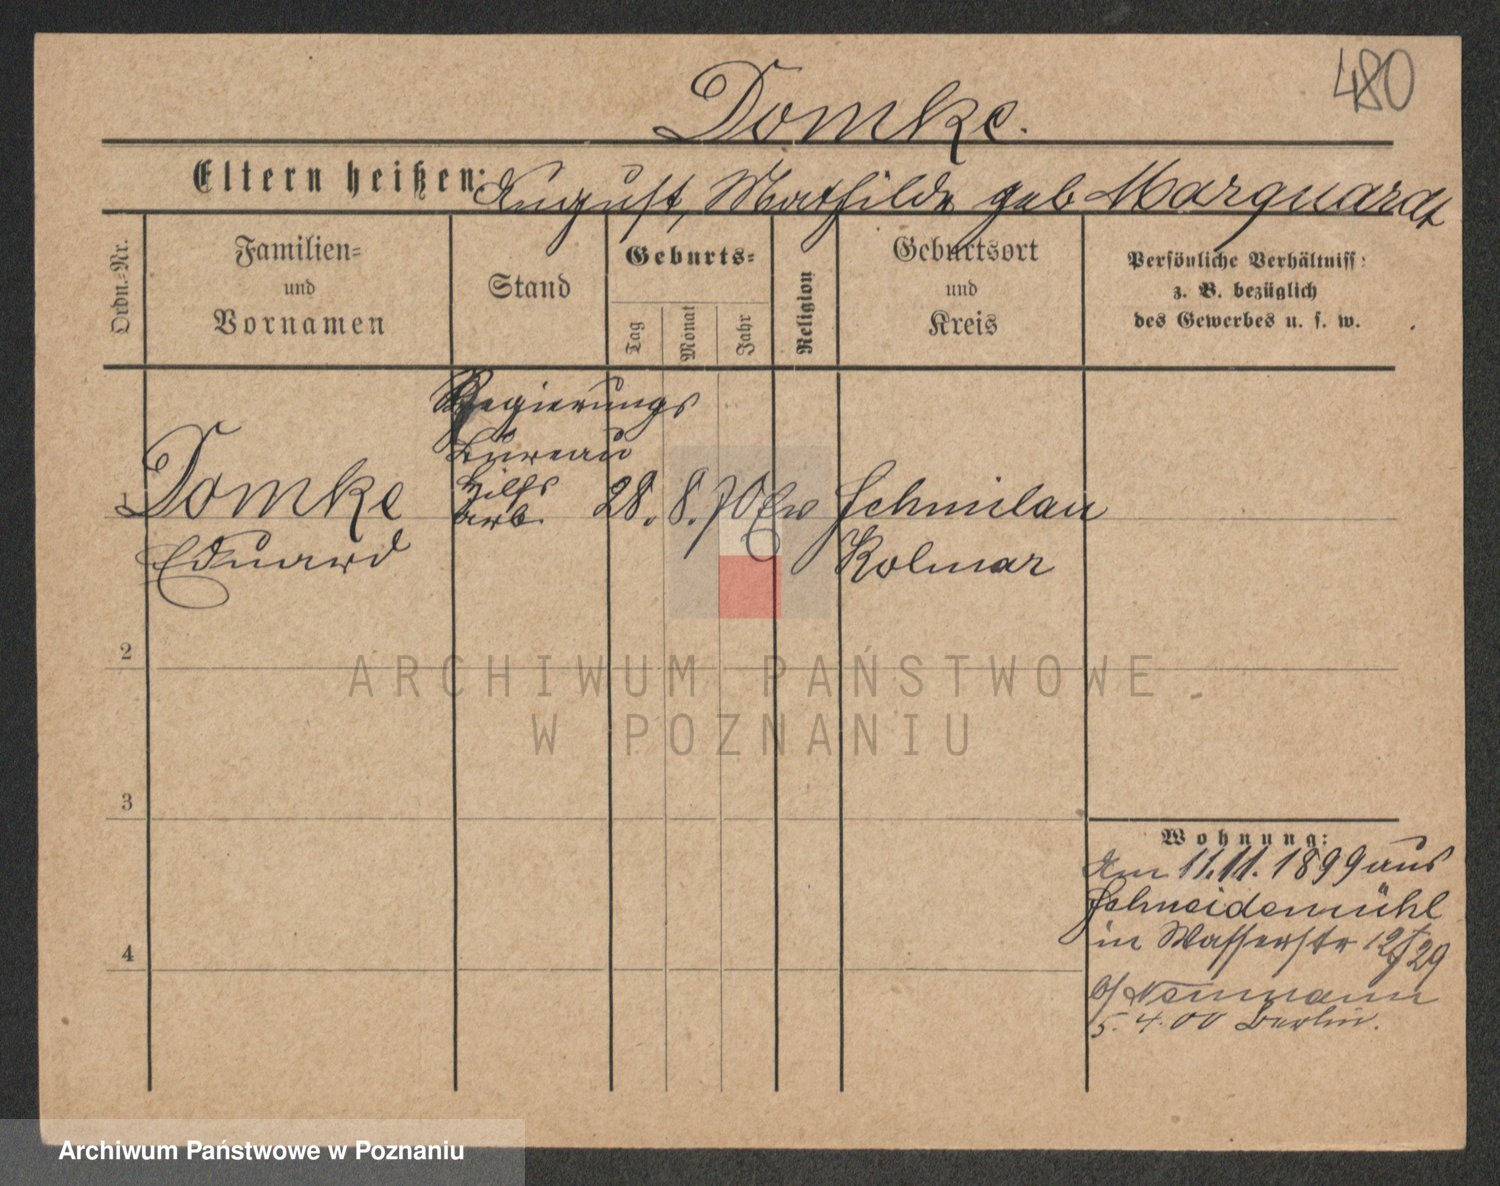 480
Domke.
Eltern heißen: August, Mathilde geb Marquardt
Ordn.-Nr.
Familien-
und
Vornamen
Stand
Geburts-
Tag
Monat
Jahr
Religion
Geburtsort
und
Kreis
Persönliche Verhältniss:
z. B. bezüglich
des Gewerbes u. s. w.
Regierungs
Bureau
Hilfs
arb.
1 Domke 28. 8. 70 Ev Schmilau
Eduard Kolmar
2
ARCHIWUM PAŃSTWOWE
W POZNANIU
3
Wohnung:
Am 11.11.1899 aus
Schneidemühl
in Wasserstr 12/29
b/ Neumann
5.4.00 Berlin.
4
Archiwum Państwowe w Poznaniu